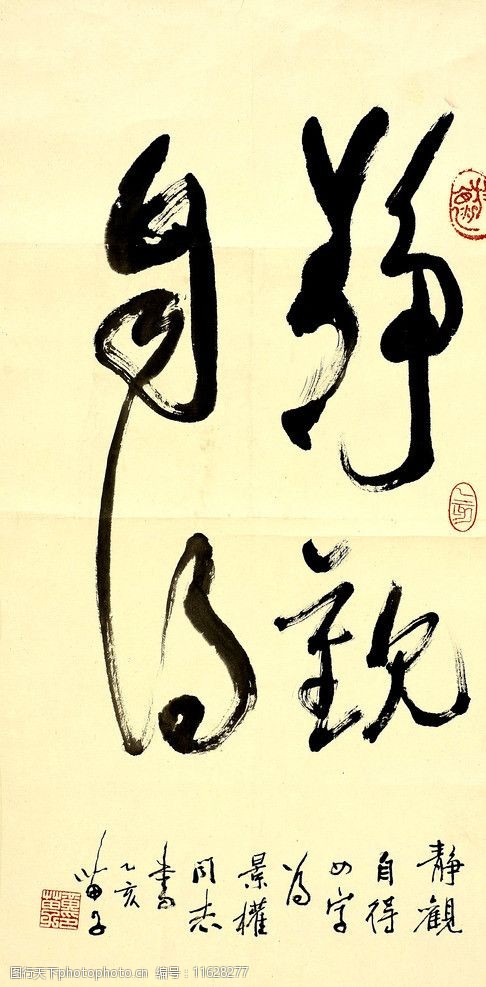 靜觀
自得
靜觀
自得
四字
為
景權
同志
書
乙亥
苗子
图行天下 photophoto.cn 编号：11628277